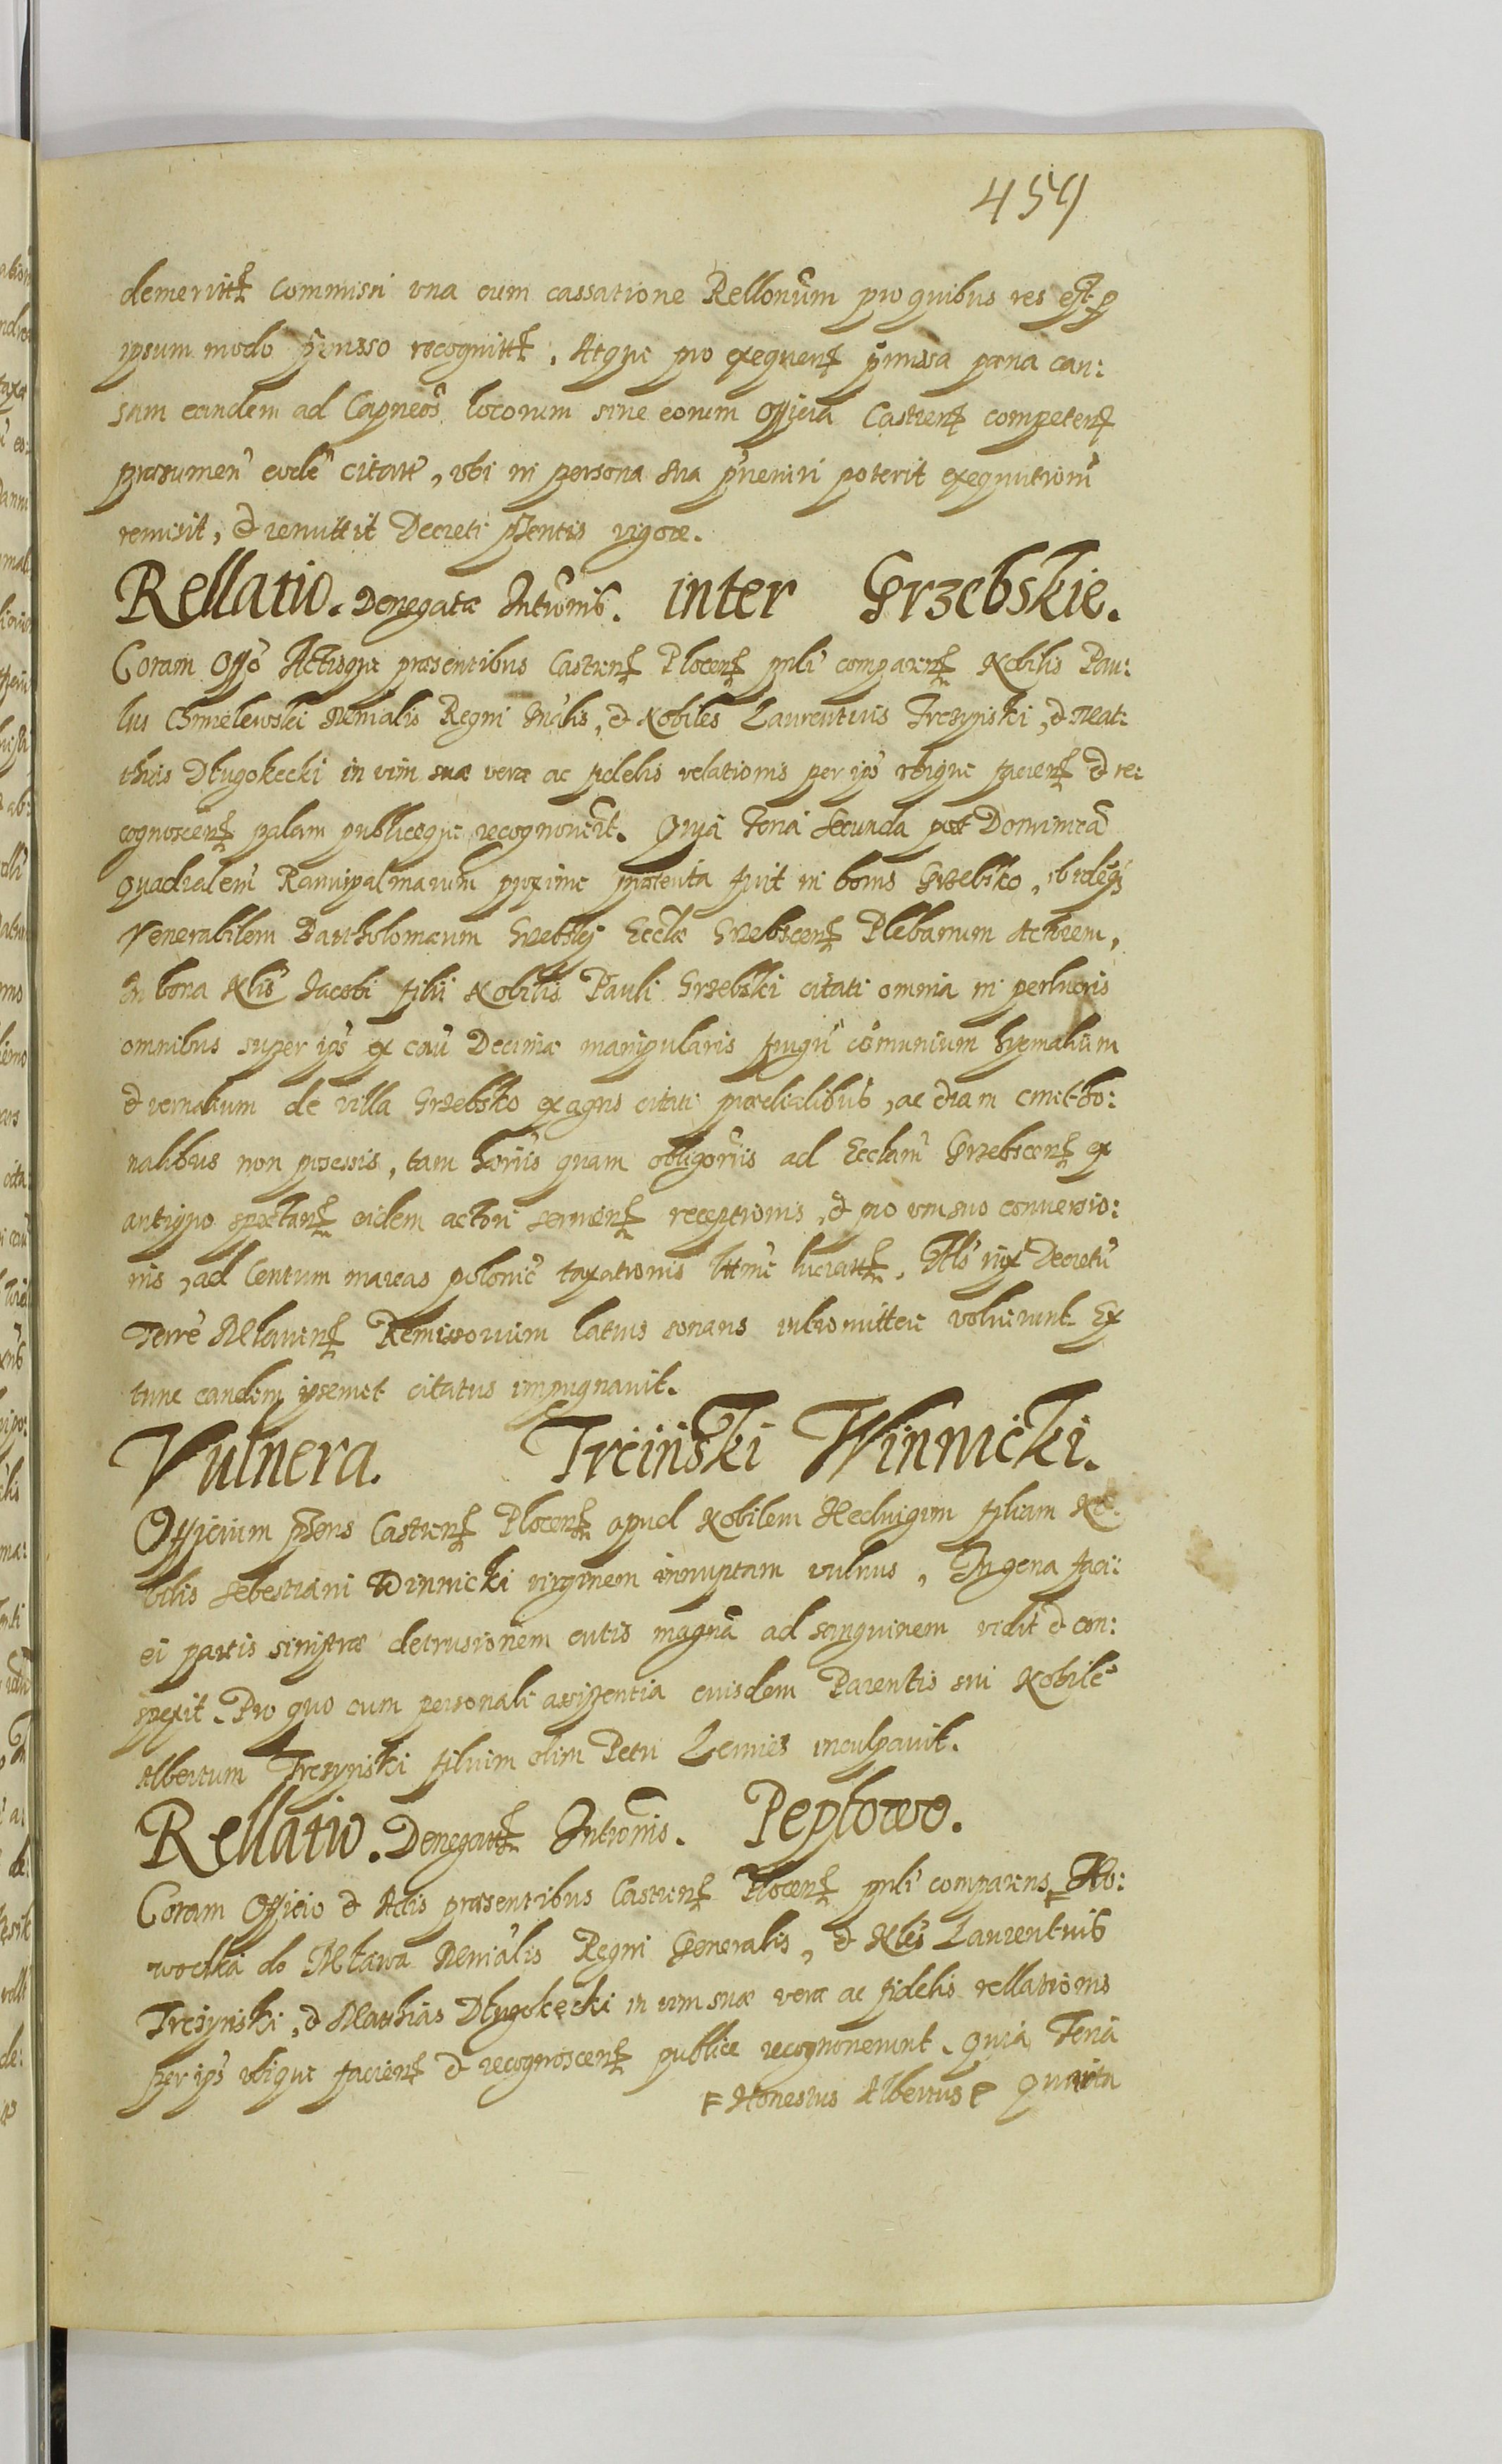 459
demeritt commissi vna cum cassatione Rellonum pro quibus res est p
ipsum modo pmisso recognitt. Atque pro exequent pmissa pæna cau:
sam eandem ad Capneos locorum siue eorum Officia Castren competen
citatu, vbi in persona sua pueniri poterit exequutioni
remisit, et remittit Decreti psentis vigore.
Rellatio. Denegatæ Intronis. inter Grzebskie.
Coram Offo Actisque præsentibus Castren Plocen pnli comparen Nobilis Pau:
lus Chmelewski Mnialis Regni Gnalis, et Nobiles Laurentius Trczynski, et Mat:
thias Dlugokecki in vim suæ veræ ac fidelis relationis per ips vtique facien et re:
cognoscen palam publiceque recognouert. Quia Feria Secunda post Dominica
Quadralem Ramispalmarum proxime præterita fuit in bonis Grzebsko, ibideq
Venerabilem Bartholomæum Grzebskj Eccla Grzebscen Plebanum Actorem,
In bona Nlis Jacobi filii Nobilis Pauli Grzebski citati omnia in perlucris
omnibus super ips ex cau Decimæ manipularis frugu comunium hyemalium
et vernalium de villa Grzebsko ex agris citati prædialibus, ac etiam cmetho:
nalibus non possessis, tam hæriis quam obligoriis ad Ecclam Grzebscen ex
antiquo spectan eidem actori seruien receptionis, et pro vmsuo conuersio:
nis, ad Centum marcas polonic taxationis lttme lucratt. Als iux Decretu
Terre Mlauien Remissorium latius sonans intromittere voluerunt Ex
tunc eandem ipsemet citatus impugnauit.
Vulnera. Trcinski Winnicki.
Officium psens Castren Plocen apud Nobilem Heduigim filiam No:
bilis Sebestiani Winnicki virginem innuptam vulnus, In gena faci:
ei partis sinistræ detrusionem cutis magna ad sanguinem vidit et con:
spexit. Pro quo cum personali assistentia euisdem Parentis sui Nobile
Albertum Trczynski filium olim Petri Lemies inculpauit.
Rellatio. Denegatt Intronis. Peplowo.
Coram Officio et Actis præsentibus Castren Plocen pnli comparens Ho:
wotka do Mlawa Mnialis Regni Generalis, et Nles Laurentius
Trczynski, et Matthias Dlugokecki in vim suæ veræ ac fidelis rellationis
per ips vtique facien et recognoscen publice recognouerunt. Quia Feria
Honestus Albertus Quarta